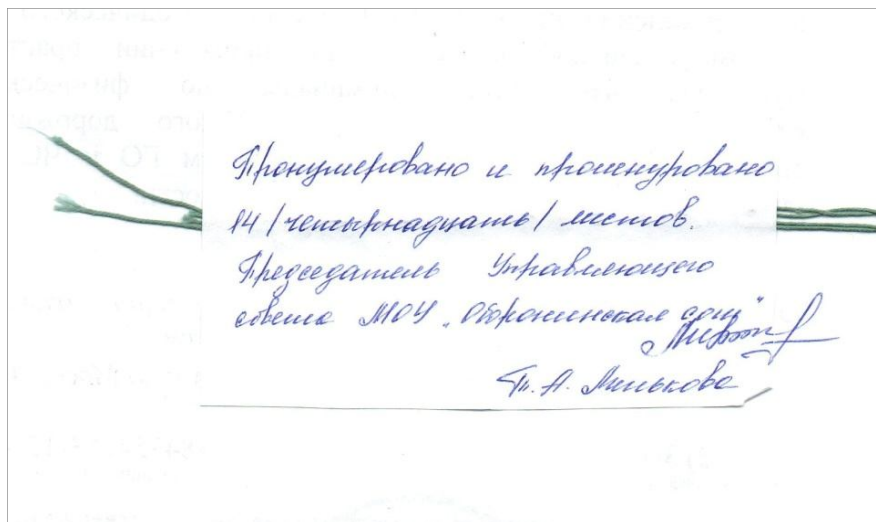 Пронумеровано и прошнуровано
14 /четырнадцать/ листов.
Председатель Управляющего
совета МОУ „Оборонинская сош"
Т. А. Минькова